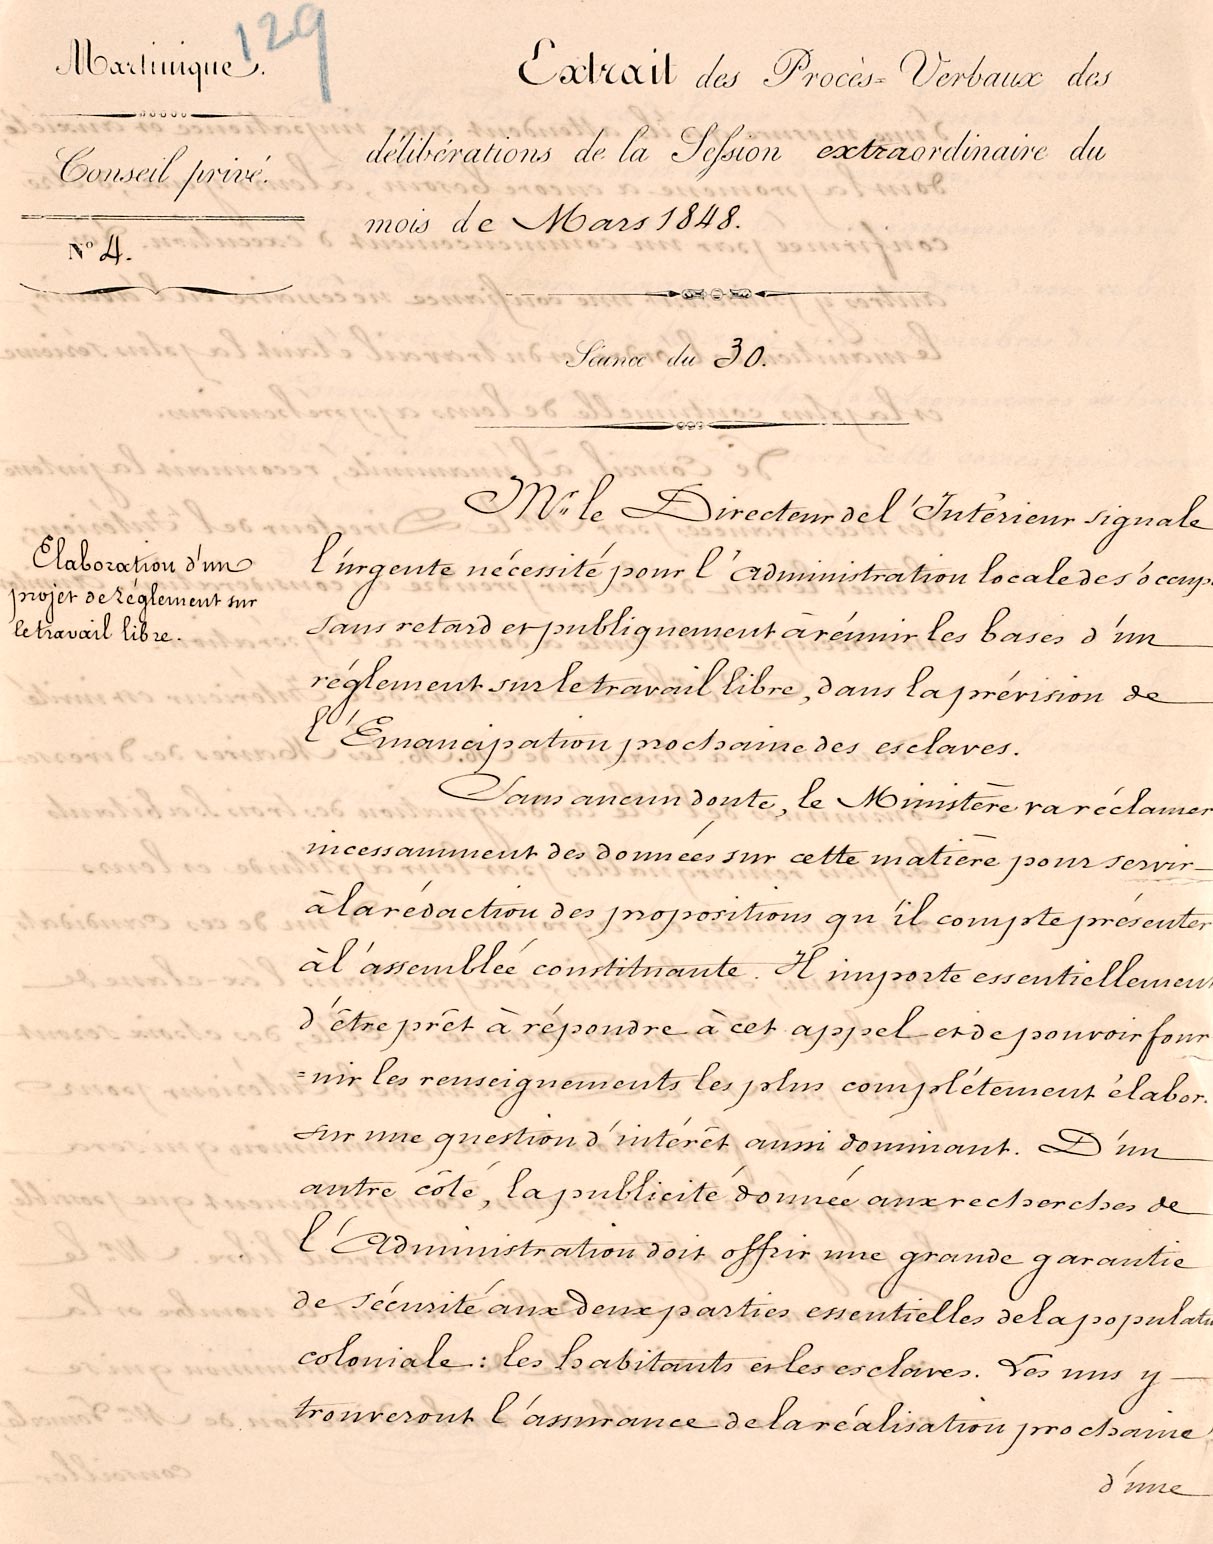 129
Martinique.
Conseil privé.
N° 4.
Extrait des Procès-Verbaux des
délibérations de la Session extraordinaire du
mois de Mars 1848.
Séance du 30.
Elaboration d'un
projet de règlement sur
le travail libre.
Mr. le Directeur de l'Intérieur signale
l'urgente nécessité pour l'administration locale de s'occup
sans retard et publiquement à réunir les bases d'un
réglement sur le travail libre, dans la prévision de
l'Emancipation prochaine des esclaves.
Sans aucun doute, le Ministère va réclamer
incessamment des données sur cette matière pour servir
à la rédaction des propositions qu'il compte présenter
à l'assemblée constituante. Il importe essentiellement
d'être prêt à répondre à cet appel et de pouvoir four
=nir les renseignements les plus complétement élabor
sur une question d'intérêt aussi dominant. D'un
autre côté, la publicité donnée aux recherches de
l'Administration doit offrir une grande garantie
de sécurité aux deux parties essentielles de la populati
coloniale : les habitants et les esclaves. Les uns y
trouveront l'assurance de la réalisation prochaine
d'une